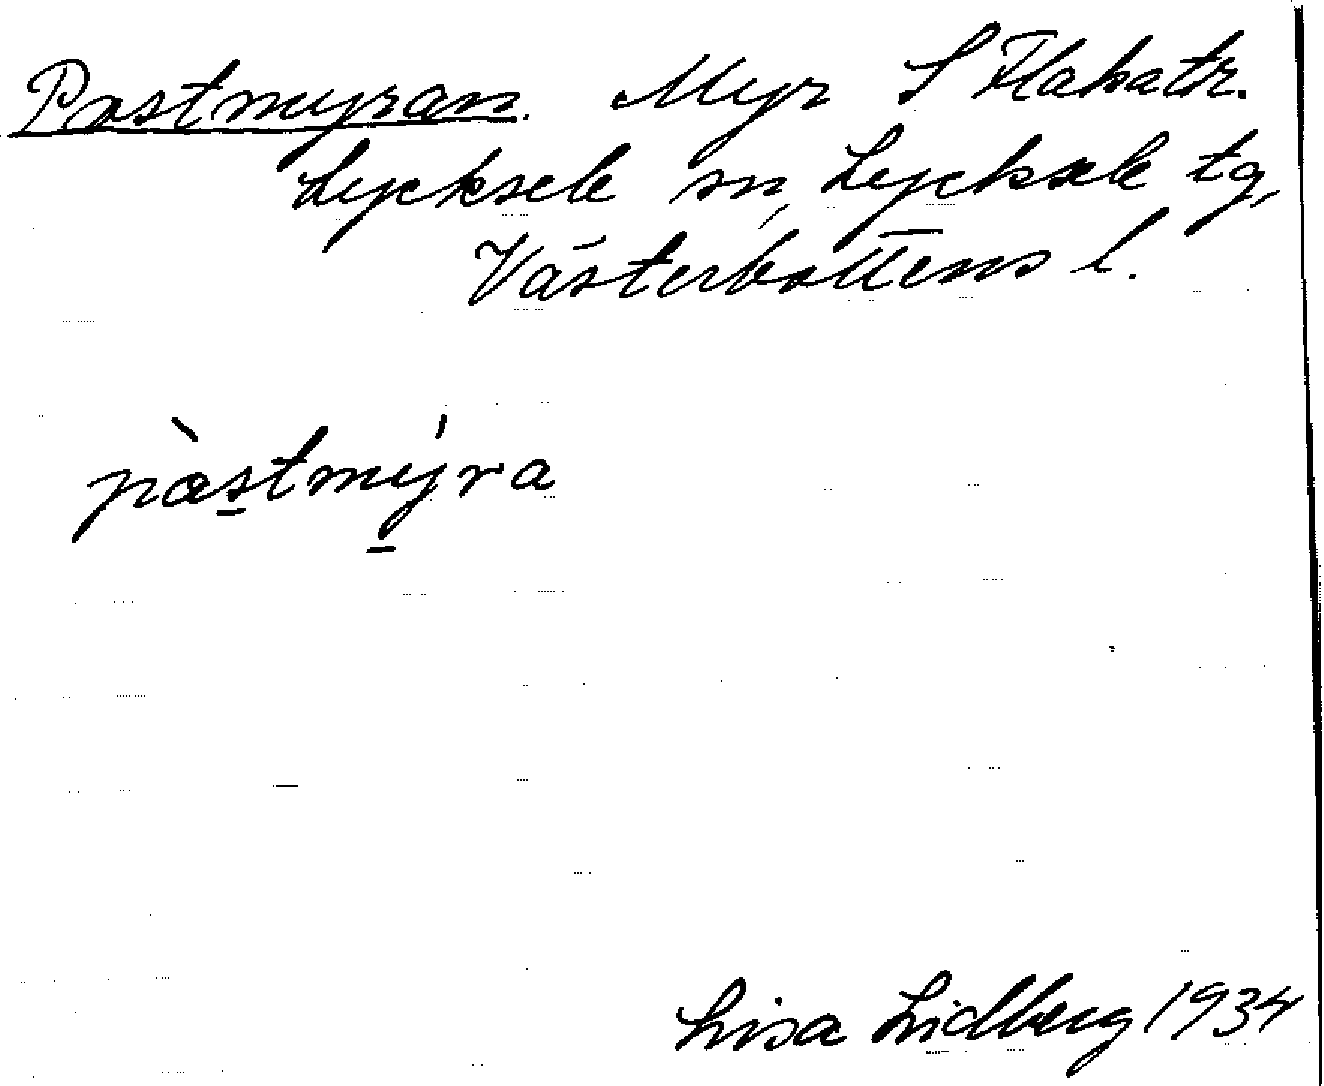 Postmyran. Myr S Flakatr.
Lycksele sn, Lycksele tg,
Västerbottens l.
pòstmýra
Lisa Lidberg 1934